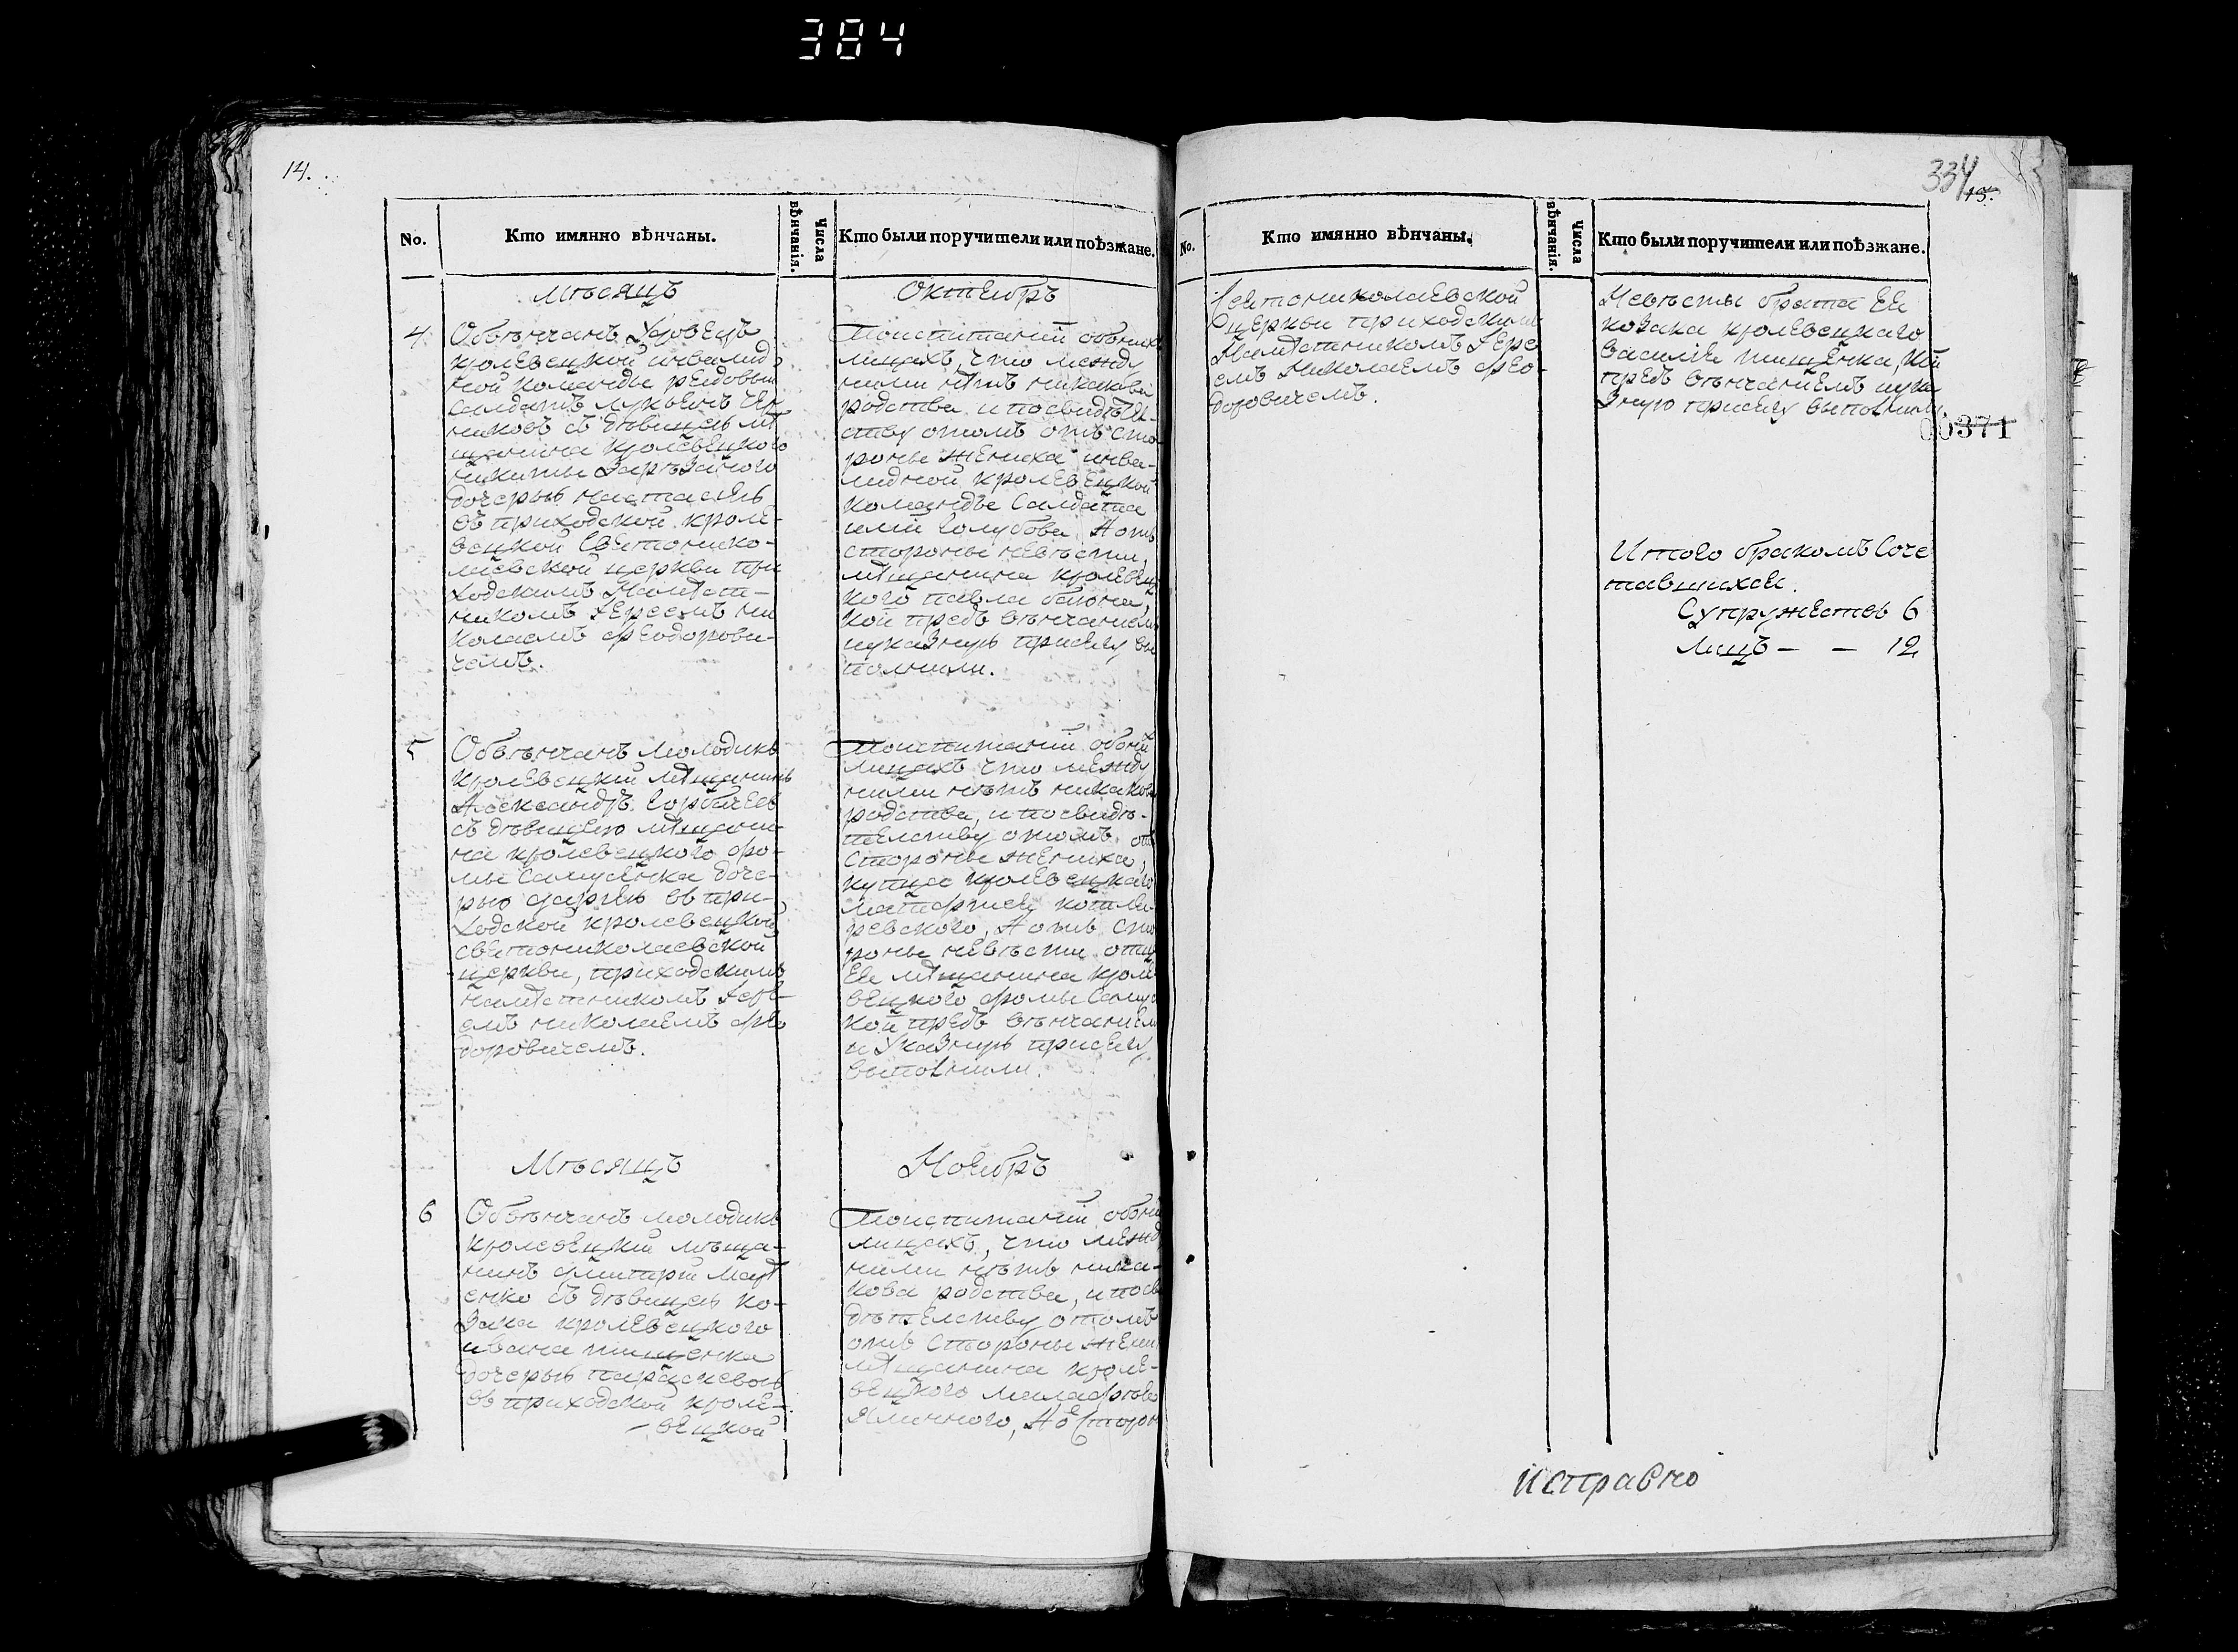 384
14.
No.
Кто имянно вѣнчаны.
Числа вѣнчанія.
Кто были поручители или поѣзжане.
Мѣсяцъ
Октябръ
4.
Обвѣнчанъ
кролевецкой инвалид
ной команды рядовый
салдатъ лукьянъ
съ дѣвицею мѣ
щанина кролевецкого
никиты
дочерью настасіею
въ приходской кроле-
вецкой Святонико-
лаевской церкви при
ходскимъ Намѣст-
никомъ Іереемъ ни
колаемъ феодорови-
чемъ.
Поиспитаніи обоихъ
лицахъ, что между
ними нѣтъ никакова
родства и посвидѣте-
ству отомъ отъ сто-
роны жениха инва-
лидной кролевецкой
команды Салдата
голубова. А отъ
стороны невѣсти,
мѣщанина кролевец
кого павла
кои предъ вѣнчаніемъ
иуказную присягу вы
полнили.
5
Обвѣнчанъ молодикъ
кролевецкий мѣщанинъ
Александръ Горбачев
съ дѣвицею мѣщани-
на кролевецкого фо-
мы доче-
рью даріею въ при-
ходской кролевецкой
святониколаевской
церкви, приходскимъ
намѣстникомъ Іере-
емъ николаемъ фео
доровичемъ.
Поиспитаніи обоихъ
лицахъ что между
ними нѣтъ никакова
родства, и посвидѣ-
телству отомъ отъ
стороны жениха,
купца кролевецкаго
котля-
ревского, А отъ сто
роны невѣсти отца
Ея мѣщанина кроле
вецкого фомы
кои предъ вѣнчаніем
и Указную присягу
выполнили.
Мѣсяцъ
Ноябръ
6
Обвѣнчанъ молодикъ
кролевецкий мѣща-
нинъ дмитрій
съ дѣвицею ко-
зака кролевецкого
ивана тищенка
дочерью параскевою
въ приходской кроле-
- вецкой
Поиспитаніи обоихъ
лицахъ, что между
ними нѣтъ ника-
кова родства, и посви
дѣтелству отомъ
отъ Стороны жени
мѣщанина кроле-
вецкого
А Сторон
334
15.
No.
Кто имянно вѣнчаны.
Числа вѣнчанія.
Кто были поручители или поѣзжане.
Святониколаевской
Церкви приходским
Намѣстникомъ Іере
емъ Николаемъ фео-
доровичемъ.
Невѣсты брата Ея
козака кролевецкаго
василія тищенка, кои
предъ вѣнчаніемъ иука
зную присягу выполнили.
00371
Итого бракомъ Соче
тавшихся.
Супружествъ 6
Лицъ - - 12
Исправно